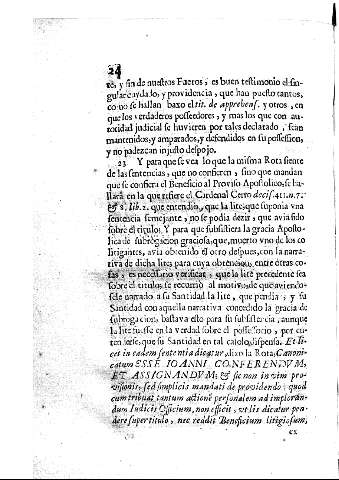 24
te, y fin de nuestros Fueros, es buen testimonio el sin-
gular cuydado, y providencia, que han puesto tantos,
como se hallan baxo el tit. de apprehens. y otros, en
que los verdaderos possedores, y mas los que con au-
toridad judicial se huvieren por tales declarado, sean
mantenidos, y amparados, y defendidos en su possession,
y no padezcan injusto despojo.
23 Y para que se vea lo que la misma Rota siente
de las sentencias, que no confieren, sino que mandan
que se confiera el Beneficio al Proviso Apostolico, se ha-
llará en la que refiere el Cardenal Cerro decis. 411. n. 7.
& 8. lib. 2. que entendia, que la lite, que suponia vna
sentencia semejante, no se podia dezir, que avia sido
sobre el titulo. Y para que subsistiera la gracia Aposto-
lica de subrogacion graciosa, que, muerto vno de los co
litigantes, avia obtenido el otro despues, con la narra-
tiva de dicha lite; para cuya obtencion, entre otras co-
sas, es necessario verificar, que la lite precedente sea
sobre el titulo; se recurriò al motivo, de que aviendo-
sele narrado a su Santidad la lite, que pendia, y su
Santidad con aquella narrativa concedido la gracia de
subrogacion, bastava ello para su subsistencia, aunque
la lite fuesse en la verdad sobre el possessorio, por en-
tenderse, que su Santidad en tal caso lo dispensa. Et li-
cet in eadem sententia dicatur, dixo la Rota, Canoni-
catum ESSE IOANNI CONFERENDVM,
ET ASSIGNANDVM; & sic non in vim pro-
visionis, sed simplicis mandati de providendo; quod
cum tribuat tantum actionẽ personalem ad imploran-
dum Iudicis Officium, non efficit, vt lis dicatur pen-
dere super titulo, nec reddit Beneficium litigiosum,
ex